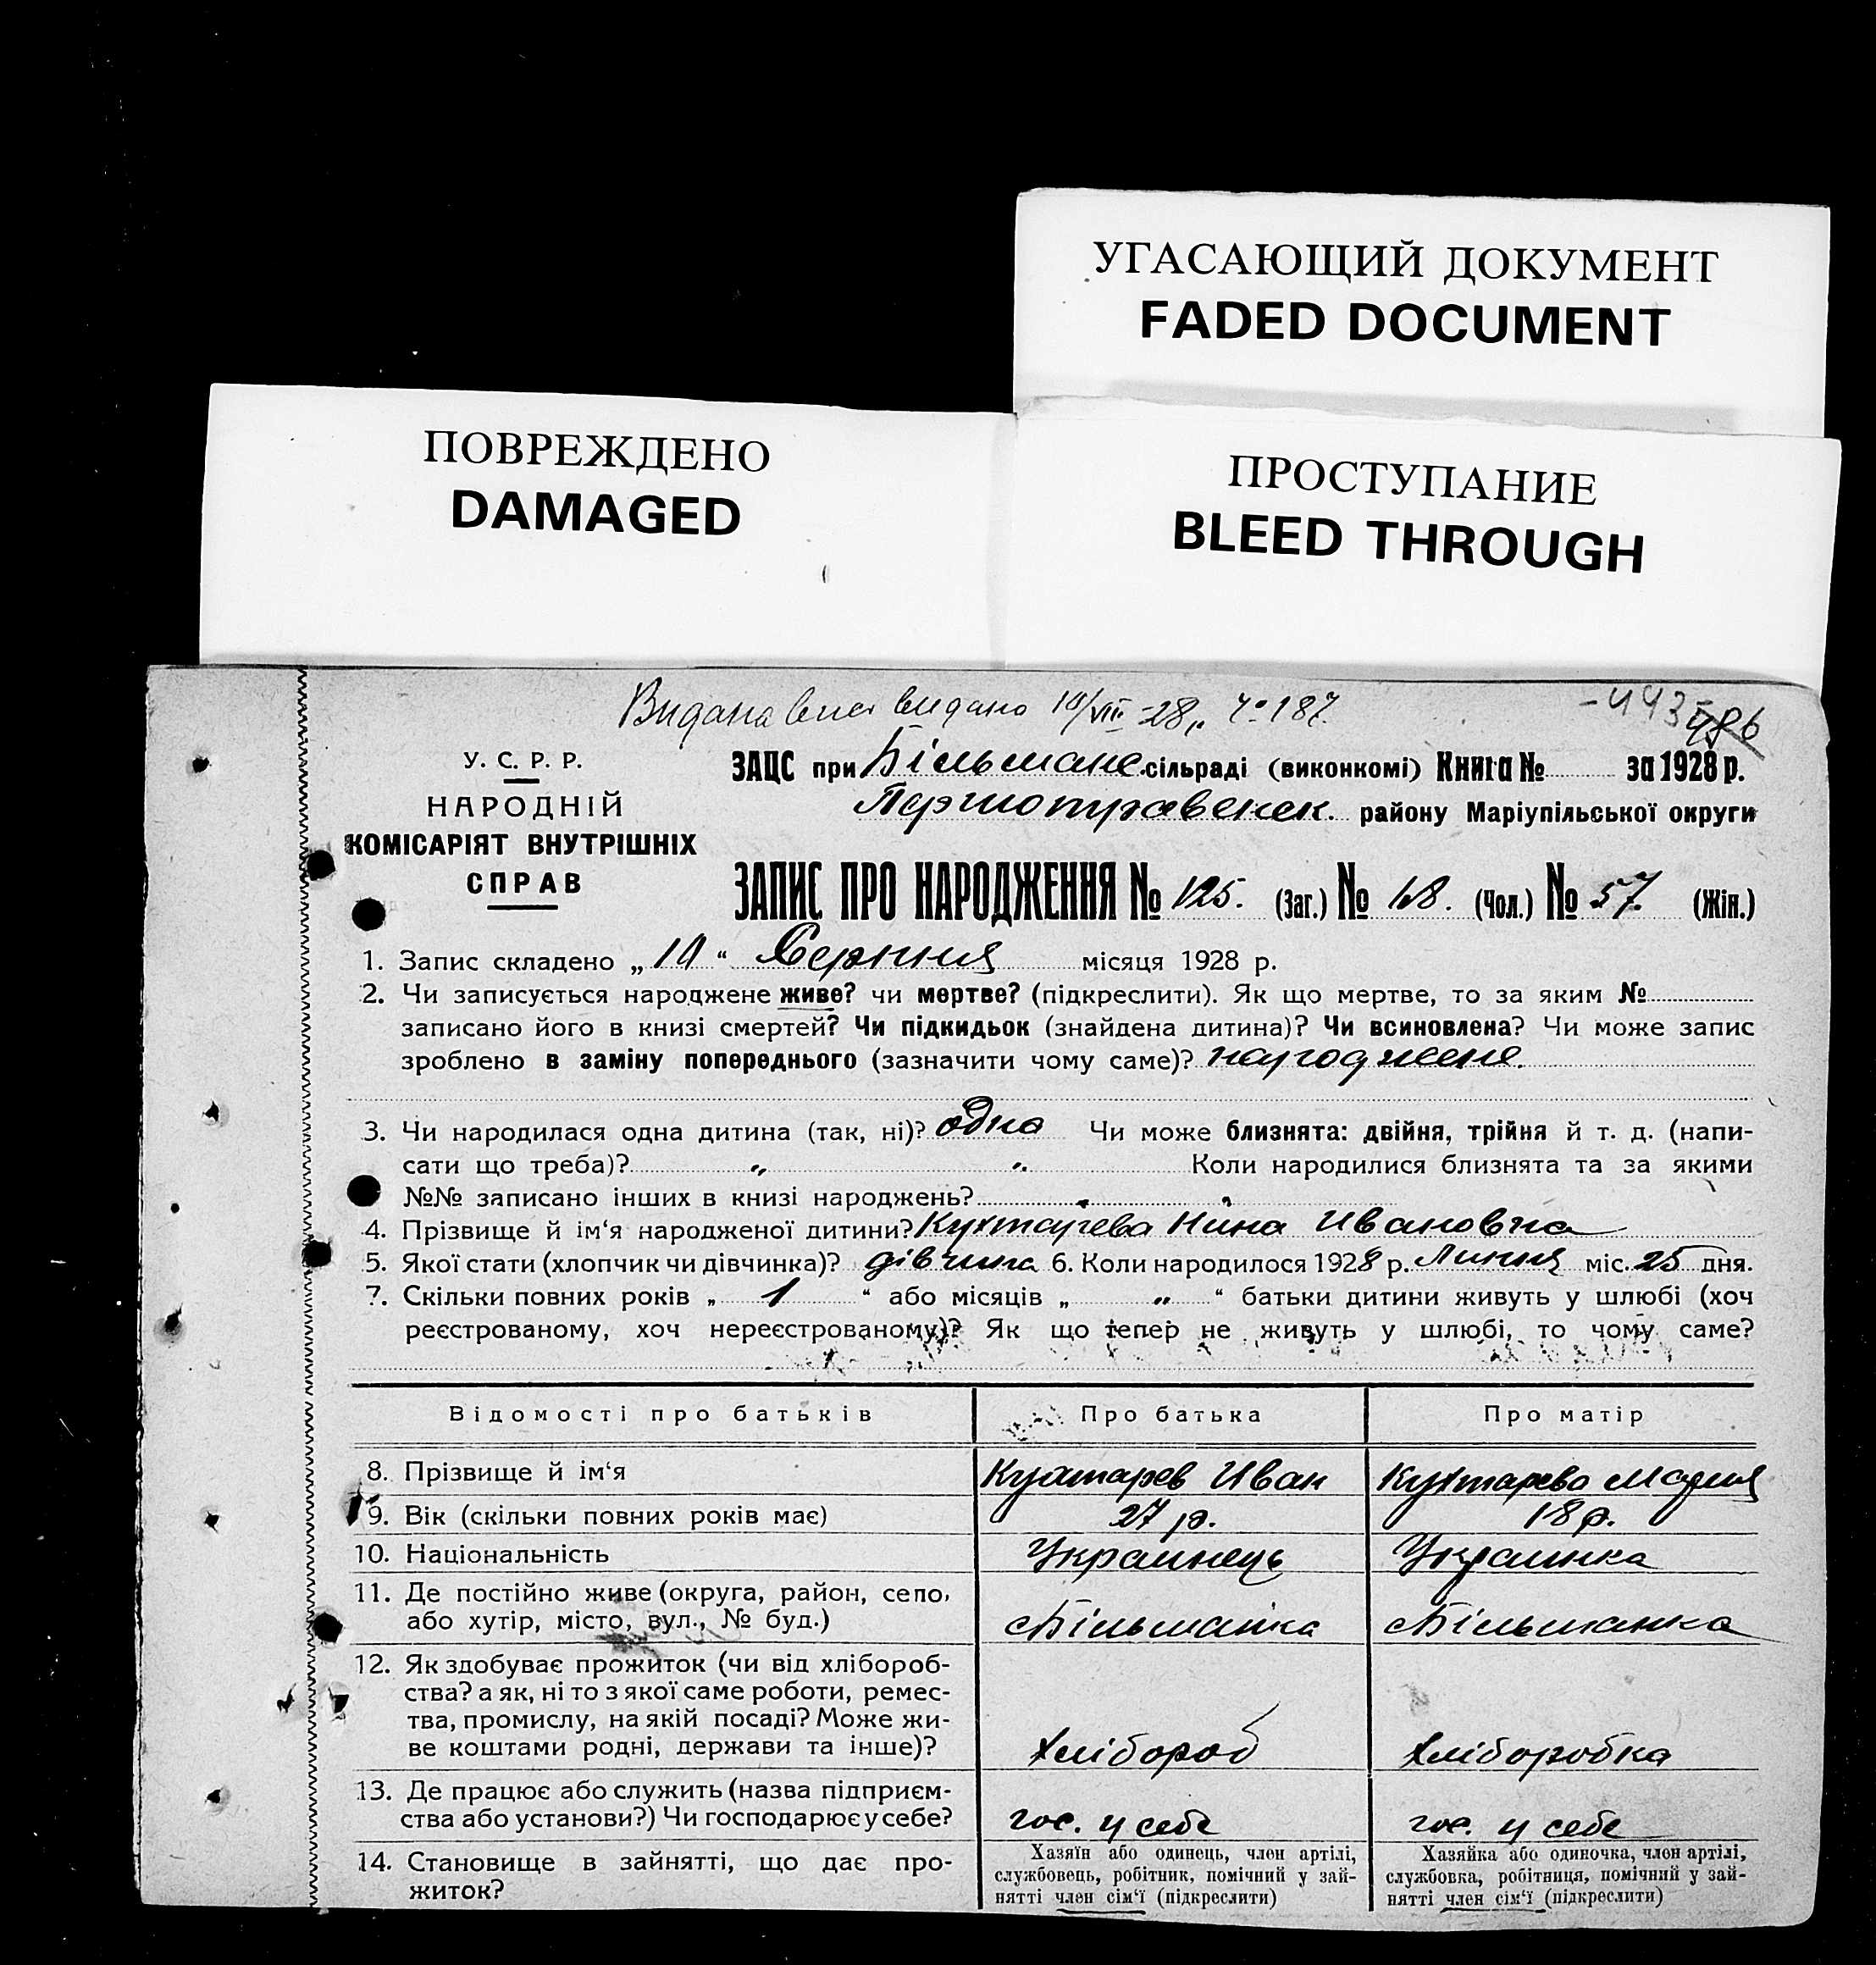 УГАСАЮЩИЙ ДОКУМЕНТ
FADED DOCUMENT
ПОВРЕЖДЕНО
DAMAGED
ПРОСТУПАНИЕ
BLEED THROUGH
видано 10/VIII-28 187
-443 486
У. С. Р. Р.
НАРОДНІЙ
КОМІСАРІЯТ ВНУТРІШНІХ
СПРАВ
ЗАЦС при Більмане. сільраді (виконкомі) Книга № за 1928 р.
району Маріупільської округи
ЗАПИС ПРО НАРОДЖЕННЯ № 125. (Заг.) № 68. (Чол.) № 57. (Жін.)
1. Запис складено „10“ Серпня місяця 1928 р.
2. Чи записується народжене живе? чи мертве? (підкреслити). Як що мертве, то за яким №
записано його в книзі смертей? Чи підкидьок (знайдена дитина)? Чи всиновлена? Чи може запис
зроблено в заміну попереднього (зазначити чому саме)? народжене.
3. Чи народилася одна дитина (так, ні)? одна Чи може близнята: двійня, трійня й т. д. (напи-
сати що треба)? „ „ Коли народилися близнята та за якими
№№ записано інших в книзі народжень? „ „
4. Прізвище й ім‘я народженої дитини? Кухтарева Нина Ивановна
5. Якої стати (хлопчик чи дівчинка)? дівчина 6. Коли народилося 1928 р. Липня міс. 25 дня.
7. Скільки повних років „ 1 “ або місяців „ „ “ батьки дитини живуть у шлюбі (хоч
реєстрованому, хоч нереєстрованому)? Як що тепер не живуть у шлюбі, то чому саме?
Відомості про батьків Про батька Про матір
8. Прізвище й ім‘я Кухтарев Иван Кухтарева Мария
9. Вік (скільки повних років має) 27 р. 18 р.
10. Національність Украинець Украинка
11. Де постійно живе (округа, район, село,
або хутір, місто, вул., № буд.) Більманка Більманка
12. Як здобуває прожиток (чи від хлібороб-
ства? а як, ні то з якої саме роботи, ремес-
тва, промислу, на якій посаді? Може жи-
ве коштами родні, держави та інше)? Хлібороб Хліборобка
13. Де працює або служить (назва підприєм-
ства або установи?) Чи господарює у себе? гос. у себе гос. у себе
14. Становище в зайнятті, що дає про-
житок?
Хазяїн або одинець, член артілі,
службовець, робітник, помічний у зай-
нятті член сім‘ї (підкреслити)
Хазяйка або одиночка, член артілі,
службовка, робітниця, помічний у зай-
нятті член сім‘ї (підкреслити)